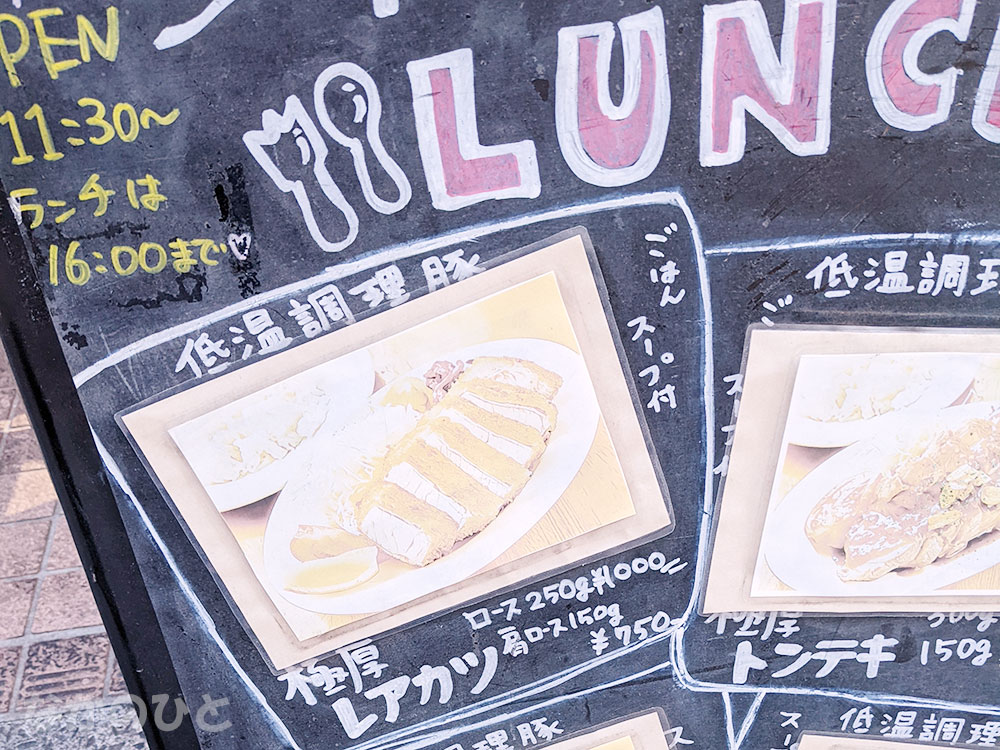 OPEN
11:30〜
ランチは
16:00まで♡
LUNCH
低温調理豚
ごはん
スープ付
ロース250g ¥1000
肩ロース150g
¥750
極厚
レアカツ
低温調理
ご
ス
極厚
トンテキ 150g
調理豚
ス
ス
低温調理
のひと